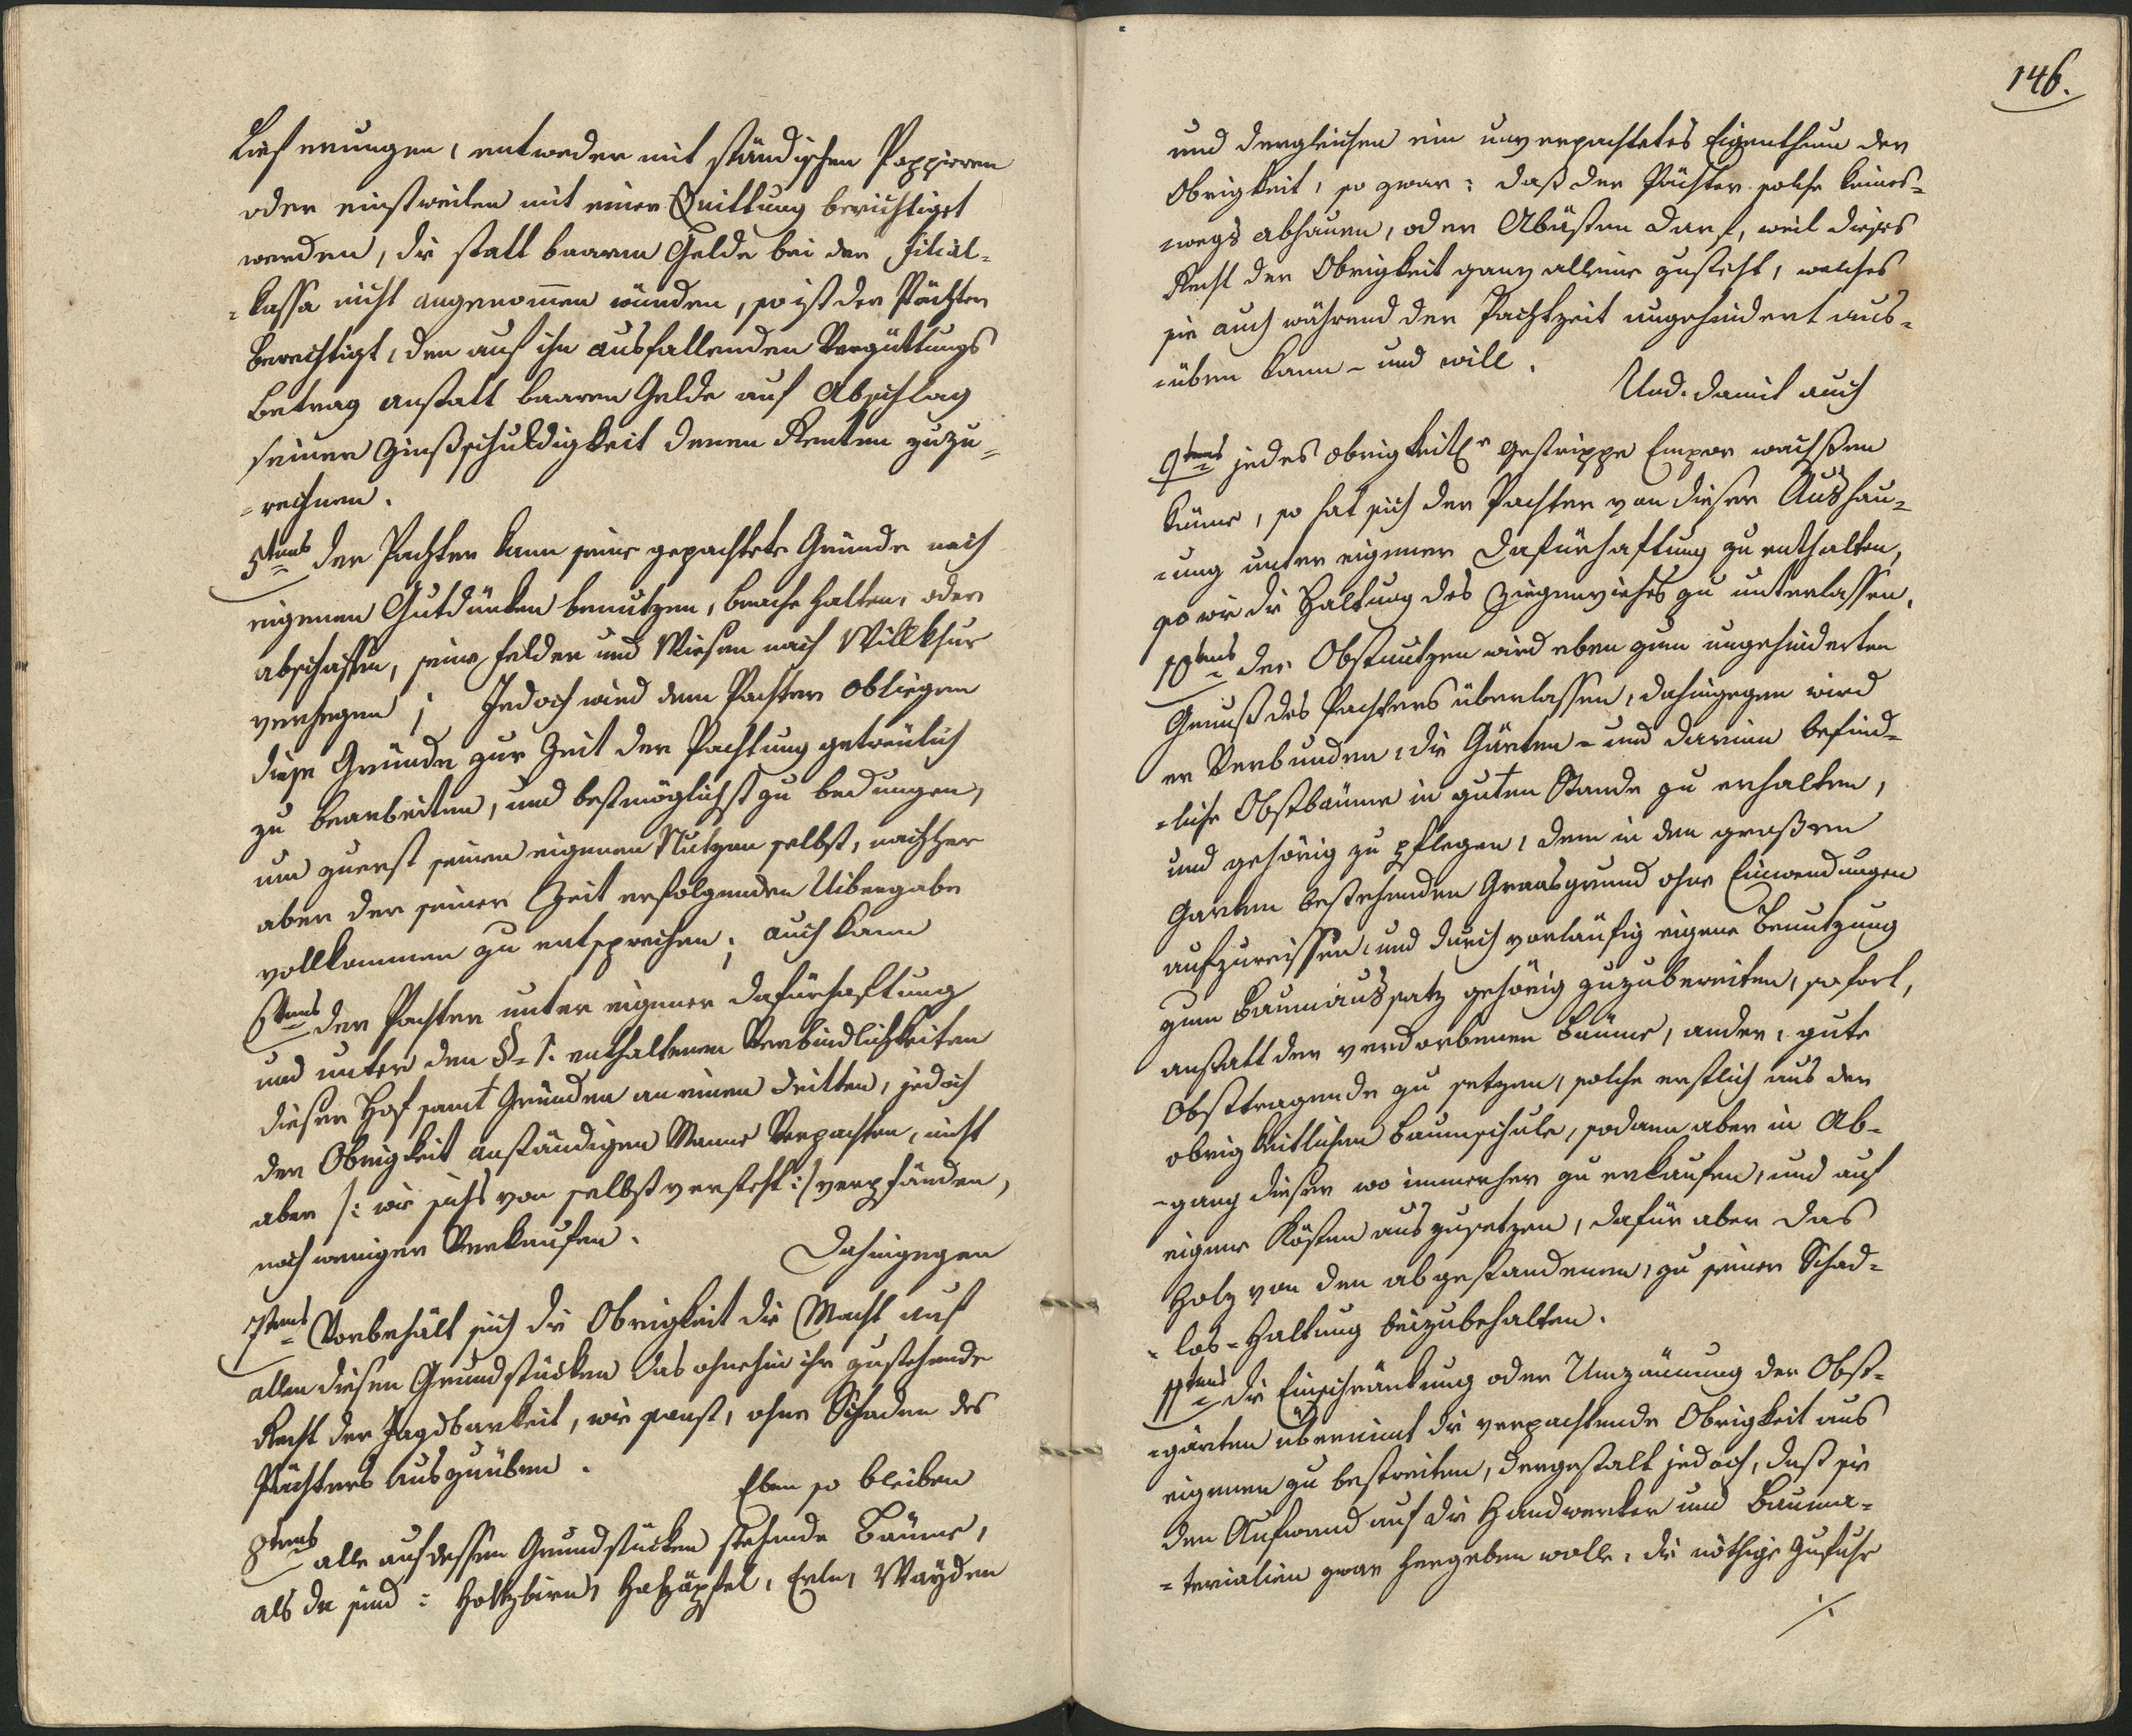 Lieferungen, entweder mit ständischen Pappieren
oder einstweilen mit einer Quittung berichtiget
werden, die statt baarem Gelde bei der Filial-
-kassa nicht angenommen würden, so ist der Pächter
berechtigt, den auf ihn ausfallenden Vergüttungs
Betrag anstatt baaren Gelde auf Abschlag
seiner Zinßschuldigkeit denen Renten zuzu-
-rechnen.
5tens der Pachter kann seine gepachtete Gründe nach
eigenen Gutdünken benutzen, brache halten, oder
abschaffen, seine Felder und Wiesen nach Willkhur
verhegen; Jedoch wird dem Pachter obliegen
diese Gründe zur Zeit der Pachtung getreülich
zu bearbeiten, und bestmöglichst zu bedungen,
um zuerst seinen eigenen Nutzen selbst, nachher
aber der seiner Zeit erfolgenden Uibergabe
vollkommen zu entsprechen; auch kann
6tens der Pachter unter eigener Dafürhaftung
und unter den §-1. enthaltenen Verbindlichkeiten
dieser Hof samt Gründen an einen dritten, jedoch
der Obrigkeit anständigen Manne Verpachten, nicht
aber /: wie sichs von selbst versteht :/ verpfänden,
noch weniger Verkaufen.
Dahingegen
7tens Vorbehält sich die Obrigkeit die Macht auf
allen diesen Grundstücken das ohnehin ihr zustehende
Recht der Jagdbarkeit, wie sonst, ohne Schaden des
Pächters auszuüben.
Eben so bleiben
8tens alle auf dessen Grundstücken stehende Bäume,
als da sind: Holtzbirn, Holzäpfel, Erln, Wayden
146.
und dergleichen ein unverpachtetes Eigenthum der
Obrigkeit, so zwar: daß der Pächter solche keines-
-wegs abhauen, oder Abästen darf, weil dieses
Recht der Obrigkeit ganz alleine zusteht, welches
sie auch während der Pachtzeit ungehindert aus-
-üben kann - und will.
Und damit auch
9tens jedes obrigkeitl. Gestrippe Empor wachßen
könne, so hat sich der Pachter von dieser Aushau-
-ung unter eigener Dafürhaftung zu enthalten,
so wie die Haltung des Ziegenviehes zu unterlassen.
10tens Der Obstnutzen wird eben zum ungehinderten
Genuß des Pachters überlassen, dahingegen wird
er Verbunden, die Gärten - und darinn befind-
-liche Obstbäume in guten Stande zu erhalten,
und gehörig zu pflegen, dem in den großen
Garten bestehenden Graasgrund ohne Einwendungen
aufzureissen, und durch vorläufig eigene Benutzung
zum Baumaussatz gehörig zuzubereiten, sofort,
anstatt der verdorbenen Bäume, ander, gute
Obsttragende zu setzen, solche erstlich aus der
obrigkeitlichen Baumschule, sodann aber in Ab-
-gang dieser wo immerher zu erkaufen, und auf
eigene Kösten auszusetzen, dafür aber das
Holz von den abgestandenen, zu seiner Schad-
-los-Haltung beizubehalten.
11tens die Einschränkung oder Umzäunung der Obst-
-gärten übernimt die verpachtende Obrigkeit aus
eigenen zu bestreiten, dergestalt jedoch, daß sie
den Aufwand auf die Handwerker und Bauma-
-terialien zwar hergeben wolle, die nöthige Zufuhr
./.